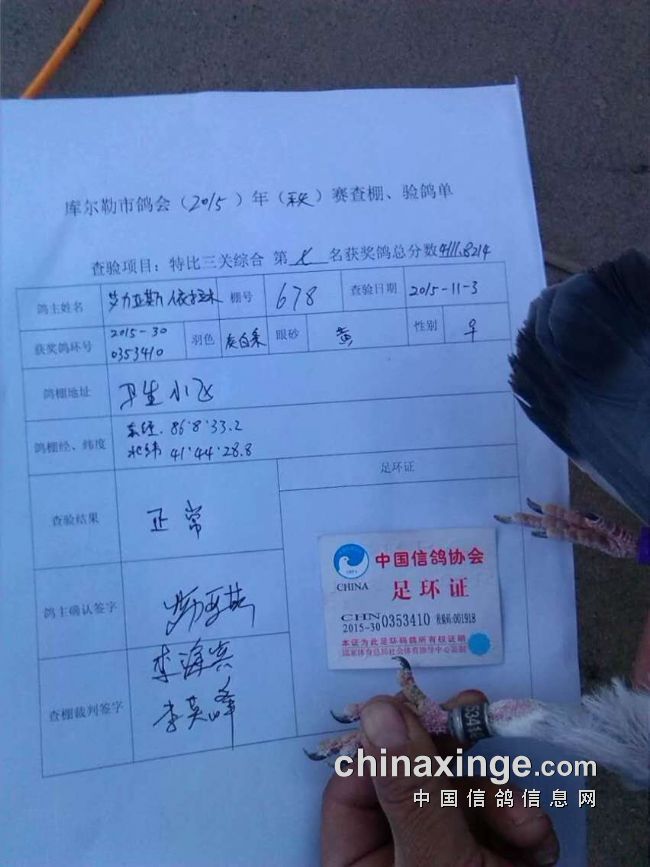 库尔勒市鸽会(2015)年(秋)赛查棚、验鸽单
查验项目:特比三关综合 第 七 名获奖鸽总分数4111.8214
鸽主姓名 棚号 678 查验日期 2015-11-3
获奖鸽环号 2015-30 0353410 羽色 眼砂 黄 性别 ♀
鸽棚地址 卫生小区
鸽棚经、纬度 东经.86°8'33.2
北纬 41°44'28.8
足环证
查验结果 正常
鸽主确认签字
查棚裁判签字 李海兵
李英峰
中国信鸽协会
CHINA
足环证
CHN
2015-30 0353410 校编码:001918
本证为此足环码鸽所有权证明
国家体育总局社会体育指导中心监制
chinaxinge.com
中国信鸽信息网